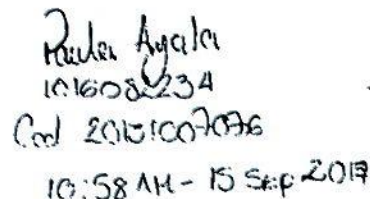 Ayala
1016082234
Cod 20151007076
10:58 AM - 15 Sep 2017